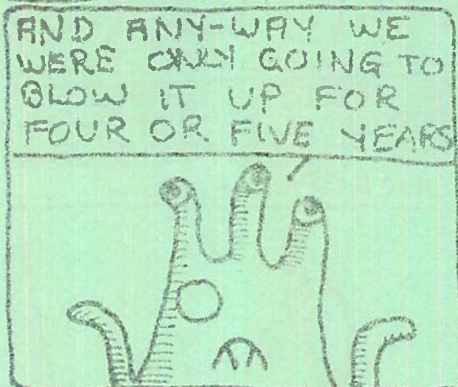 AND ANY-WAY WE
WERE ONLY GOING TO
BLOW IT UP FOR
FOUR OR FIVE YEARS